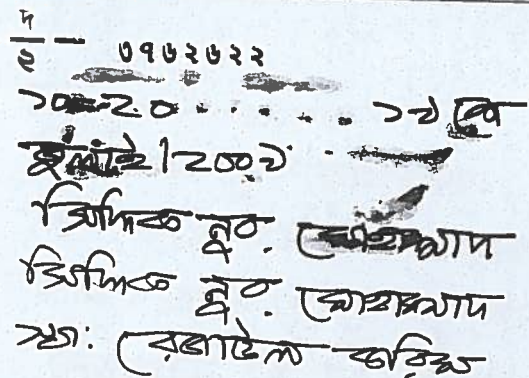 দ
২ — ৩৭৬২৬২২
১০-২০ . . . . . . ১৯ শে
জুলাই। ২০০৯
সিদ্দিক নুর. মোহাম্মাদ
সিদ্দিক নুর. মোহাম্মাদ
সাং: রেজাউল করিম